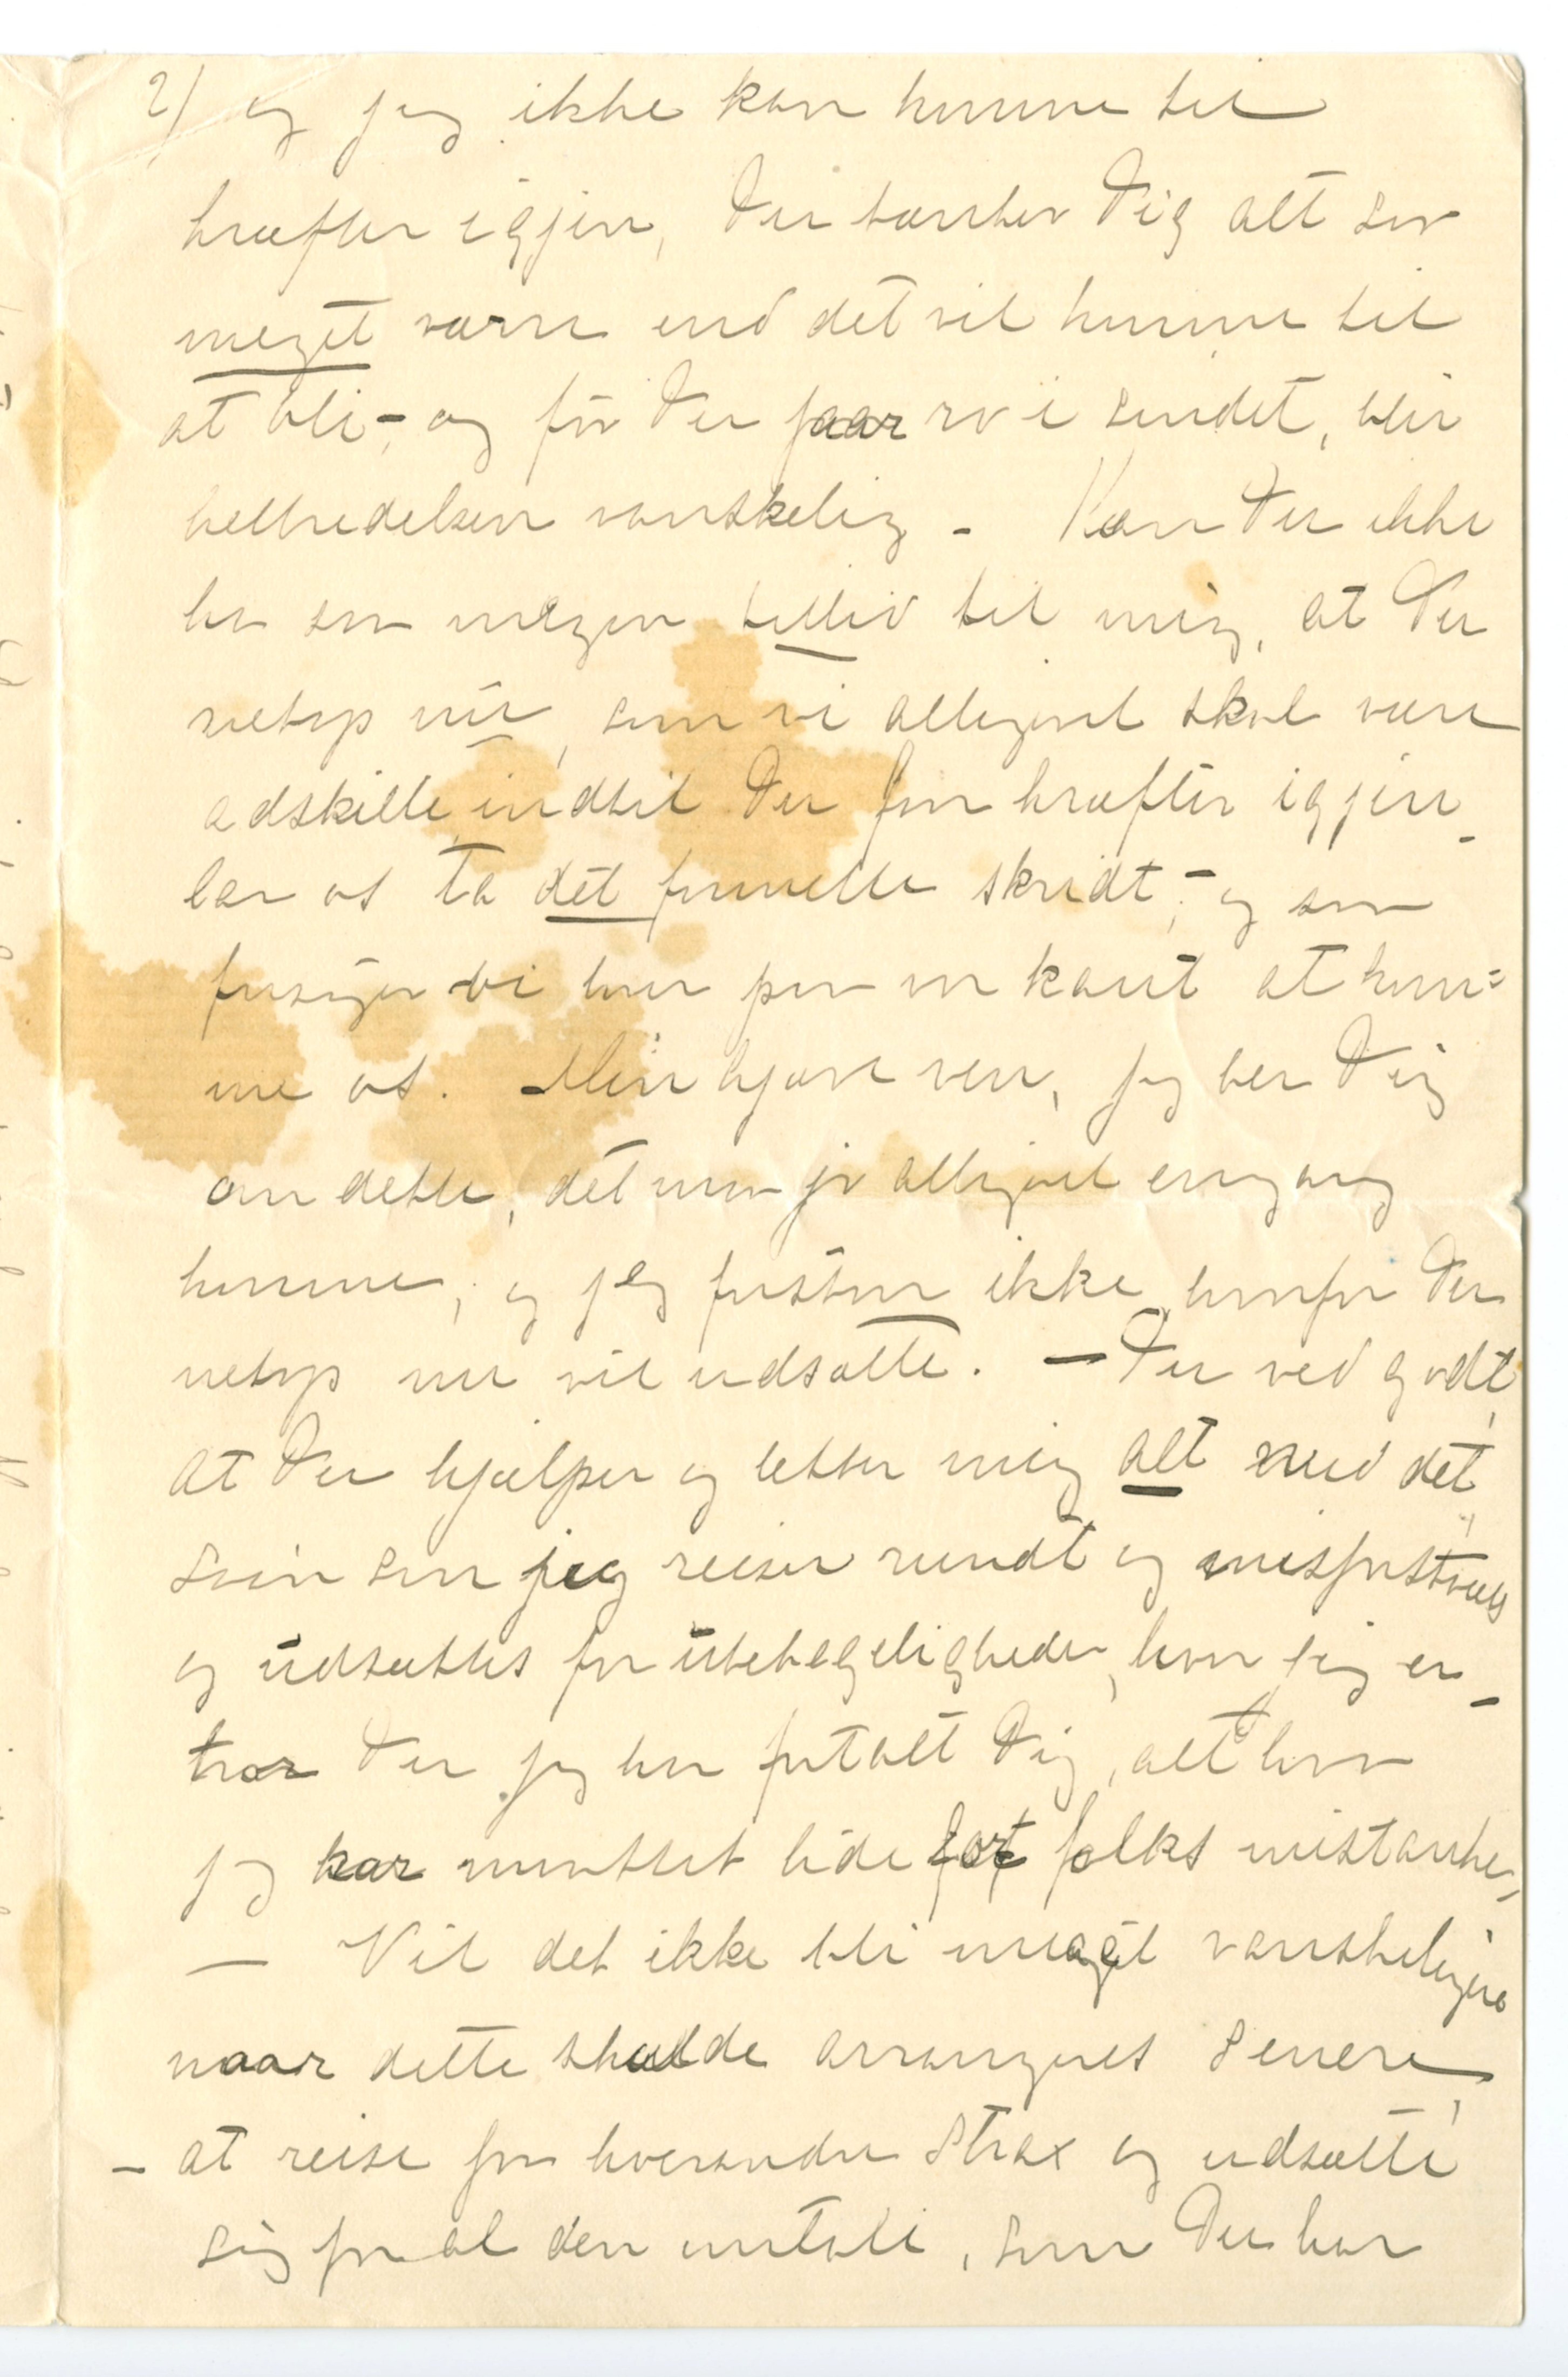 2) og jeg ikke kan komme til
kræfter igjen, Du tænker Dig alt saa
meget værre end det vil komme til
at bli, – og før Du faar ro i sindet, blir
helbredelsen vanskelig – Kan Du ikke
ha saa megen tillid til mig, at Du
netop nu, som vi alligevel skal være
adskilte indtil Du faar kræfter igjen –
lar os ta det formelle skridt, – og saa
forsøger vi hver paa en kant at kom=
me os. Min kjære ven, jeg ber Dig
om dette, det maa jo alligevel engang
komme, og jeg forstaar ikke hvorfor Du
netop nu vil udsætte. – Du ved godt,
at Du hjælper og letter mig alt med det,
som jeg reiser rundt og misforstaaes
og udsættes for ubehageligheder, hvor jeg er –
tror Du jeg har fortalt Dig, alt hvad
jeg har maattet lide for folks mistanke,
– Vil det ikke bli meget vanskeligere
naar dette skulde arrangeres senere,
– at reise fra hverandre strax og udsætte
sig for al den omtale, som Du har